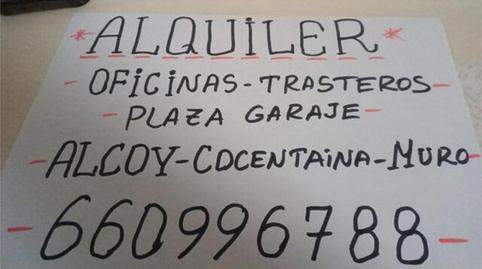 *ALQUILER*
- OFICINAS - TRASTEROS -
- PLAZA GARAJE -
- ALCOY - COCENTAINA - MURO -
- 660996788 -